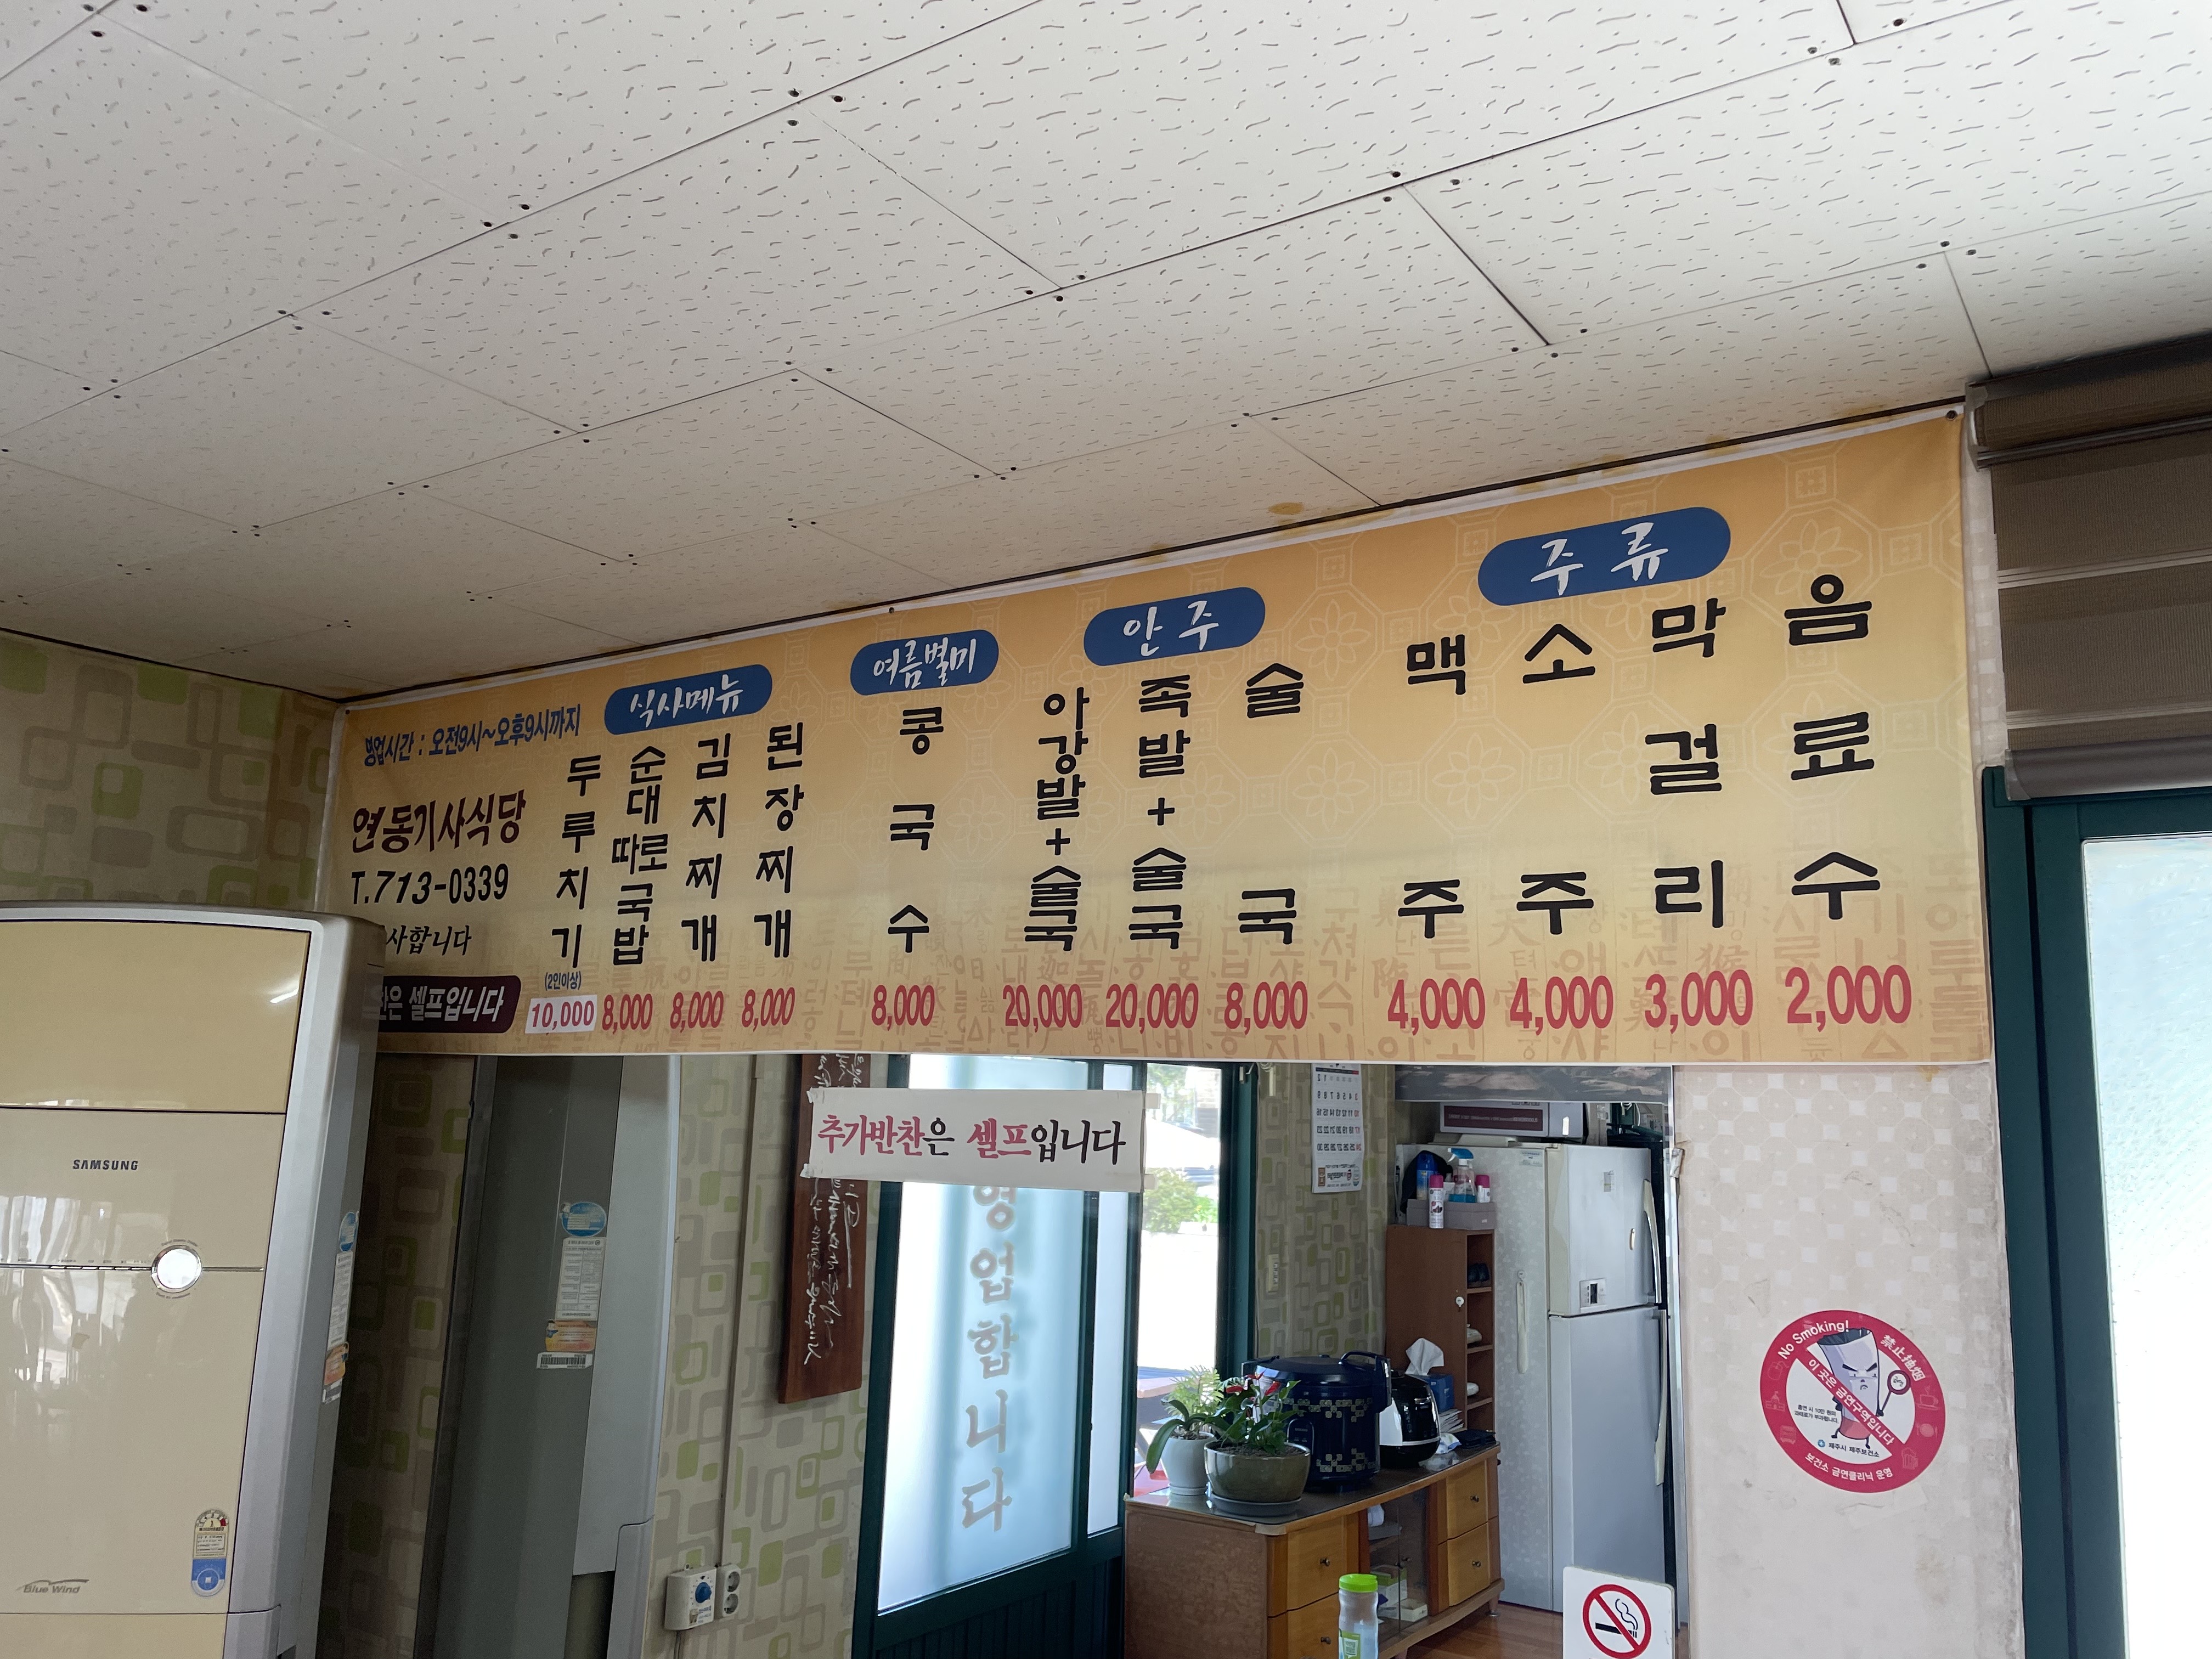 영업시간 : 오전9시~오후9시까지
연동기사식당
T.713-0339
사합니다
찬은 셀프입니다
식사메뉴
두루치기
(2인이상)
10,000
순대따로국밥
8,000
김치찌개
8,000
된장찌개
8,000
여름별미
콩국수
8,000
안주
아강발+술국
20,000
족발+술국
20,000
술국
8,000
주류
맥주
4,000
소주
4,000
막걸리
3,000
음료수
2,000
추가반찬은 셀프입니다
영업합니다
SAMSUNG
Blue Wind
No Smoking!
禁止抽烟
이 곳은 금연구역입니다
흡연 시 10만 원의
과태료가 부과됩니다.
제주시 제주보건소
보건소 금연클리닉 운영